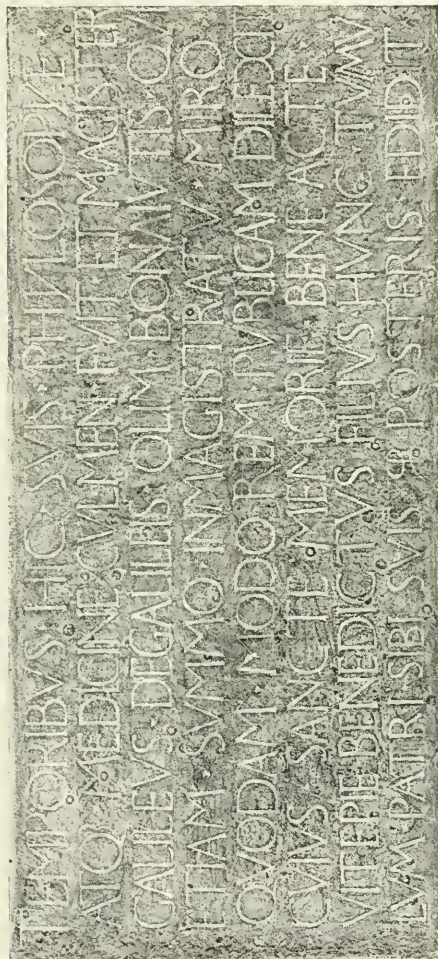 TEMPORIBVS · HIC · SVIS · PHYLOSOPHYE ·
ATQ · MEDICINE · CVLMEN · FVIT · ET · MAGISTER
GALILEVS · DEGALILEIS · OLIM · BONAIVTIS · QVI
ETIAM · SVMMO · INMAGISTRATV · MIRO
QVODAM · MODO · REM · PVBLICAM · DILEXIT
CVIVS · SANCTE · MEMORIE · BENE · ACTE
VITE PIE BENEDICTVS FILIVS · HVNC · TVMV
LVM PATRI SIBI SVIS Q POSTERIS · EDIDIT